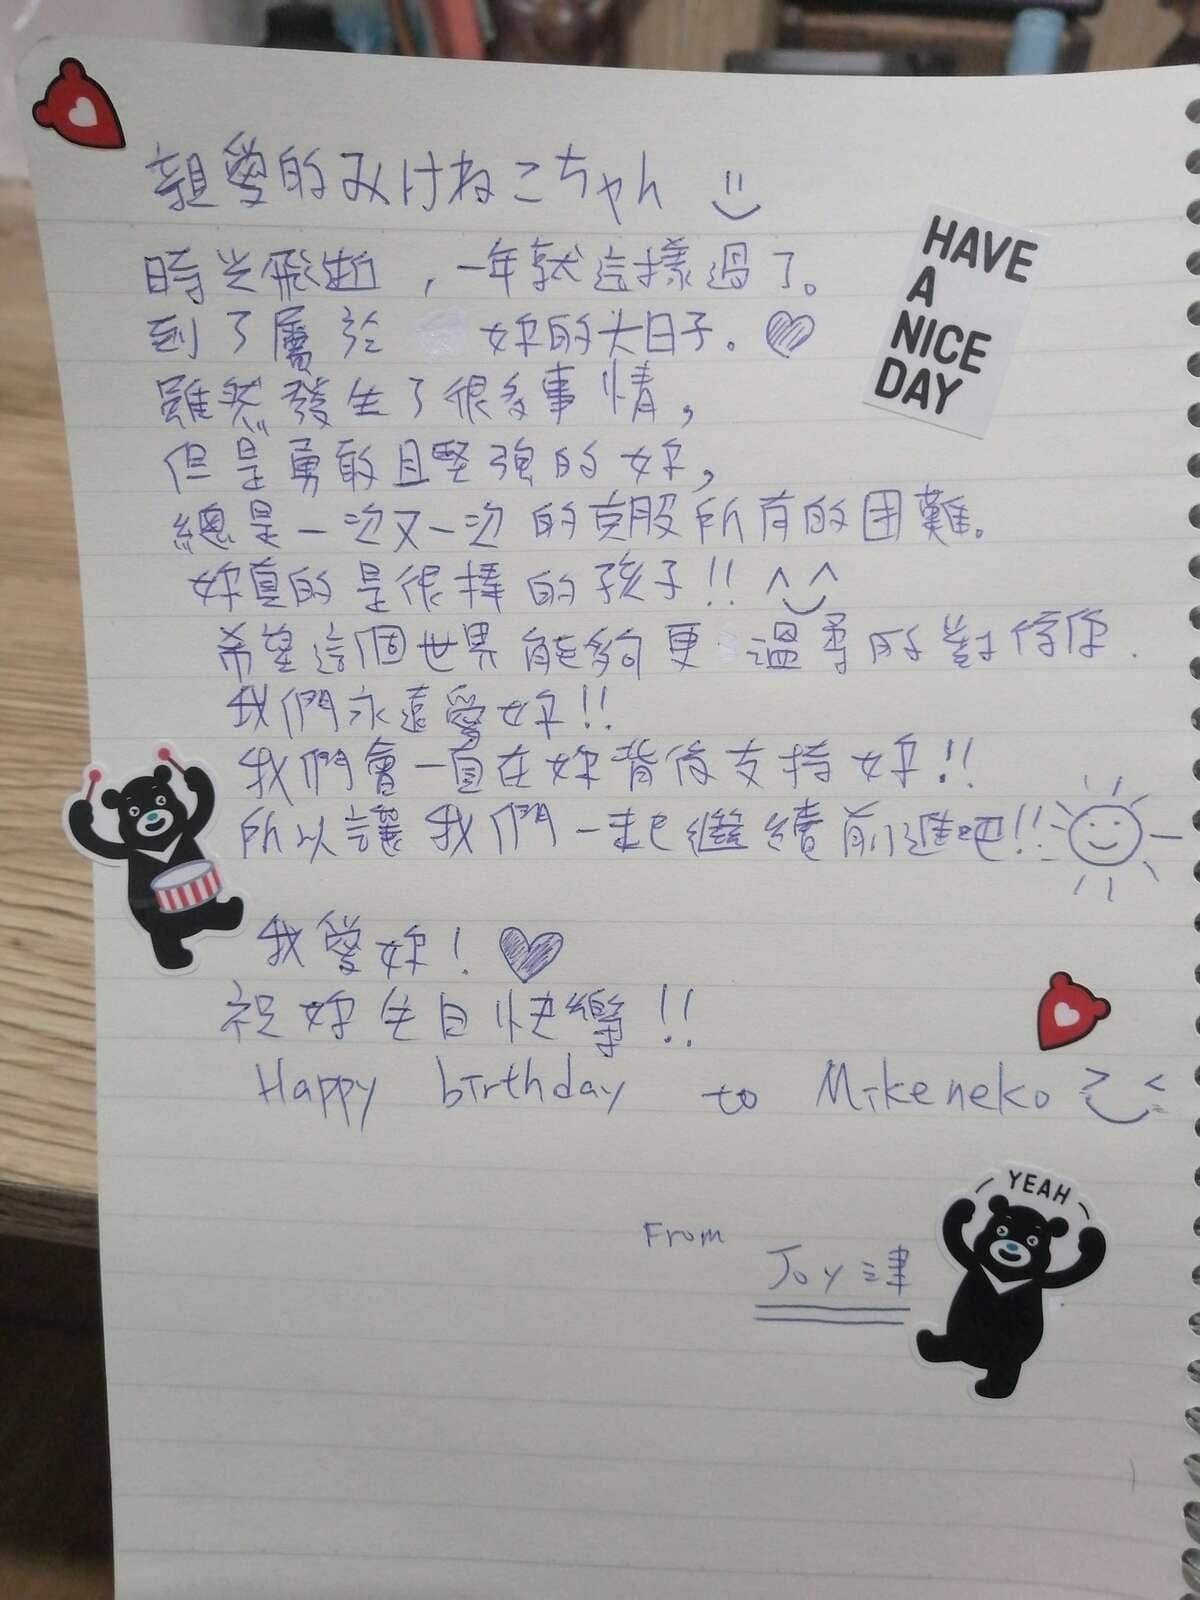 親愛的みけねこちゃん
HAVE
A
NICE
DAY
時光飛逝，一年就這樣過了。
到了屬於妳的大日子。
雖然發生了很多事情，
但是勇敢且堅強的妳，
總是一次又一次的克服所有的困難。
妳真的是很棒的孩子!! ^^
希望這個世界能夠更溫柔的對待你.
我們永遠愛妳!!
我們會一直在妳背後支持妳!!
所以讓我們一起繼續前進吧!!
我愛妳!
祝妳生日快樂!!
Happy birthday to Mikeneko
YEAH
From
Joy津